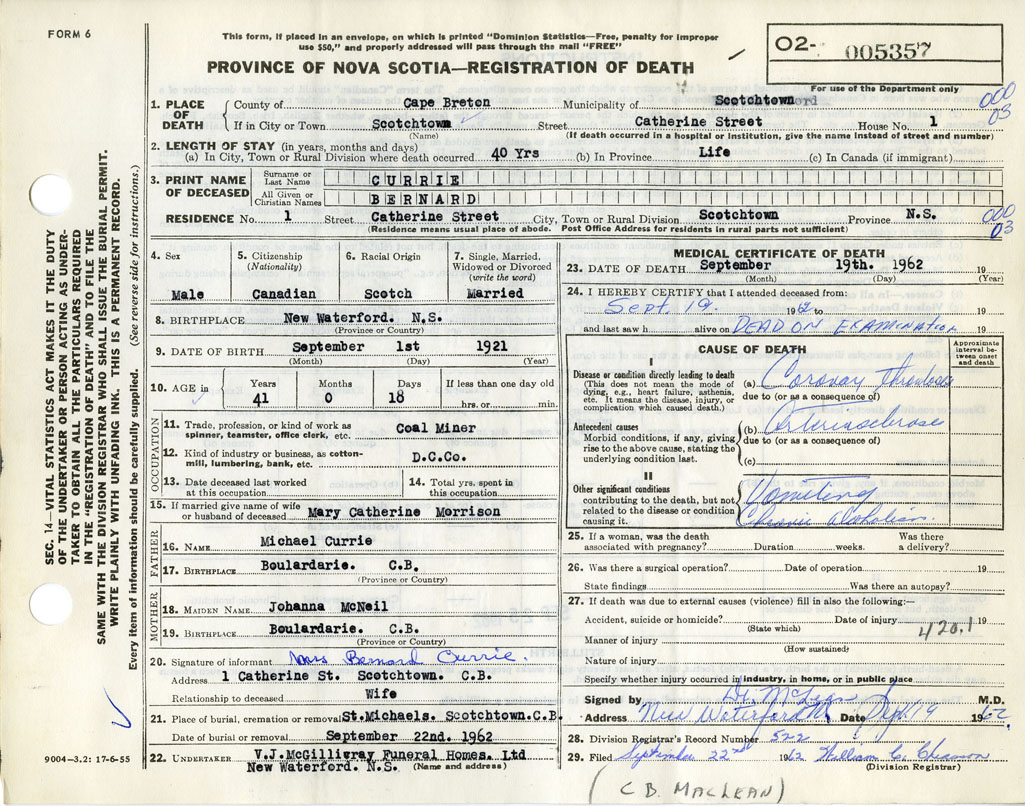 FORM 6
This form, if placed in an envelope, on which is printed "Dominion Statistics—Free, penalty for improper
use $50," and properly addressed will pass through the mail "FREE"
PROVINCE OF NOVA SCOTIA—REGISTRATION OF DEATH
02- 005357
For use of the Department only
000
03
1. PLACE OF DEATH
County of Cape Breton Municipality of Scotchtown
If in City or Town Scotchtown Street Catherine Street House No. 1
(Name) (If death occurred in a hospital or institution, give the name instead of street and number)
2. LENGTH OF STAY (in years, months and days)
(a) In City, Town or Rural Division where death occurred 40 Yrs (b) In Province Life (c) In Canada (if immigrant)
3. PRINT NAME OF DECEASED
Surname or Last Name CURRIE
All Given or Christian Names BERNARD
RESIDENCE No. 1 Street Catherine Street City, Town or Rural Division Scotchtown Province N.S.
(Residence means usual place of abode. Post Office Address for residents in rural parts not sufficient)
000
03
4. Sex
Male
5. Citizenship
(Nationality)
Canadian
6. Racial Origin
Scotch
7. Single, Married,
Widowed or Divorced
(write the word)
Married
8. BIRTHPLACE New Waterford. N.S.
(Province or Country)
9. DATE OF BIRTH September 1st 1921
(Month) (Day) (Year)
10. AGE in
Years Months Days If less than one day old
41 0 18 hrs. or min.
OCCUPATION
11. Trade, profession, or kind of work as
spinner, teamster, office clerk, etc. Coal Miner
12. Kind of industry or business, as cotton-
mill, lumbering, bank, etc. D.C.Co.
13. Date deceased last worked
at this occupation
14. Total yrs. spent in
this occupation
15. If married give name of wife
or husband of deceased Mary Catherine Morrison
FATHER
16. NAME Michael Currie
17. BIRTHPLACE Boulardarie. C.B.
(Province or Country)
MOTHER
18. MAIDEN NAME Johanna McNeil
19. BIRTHPLACE Boulardarie. C.B.
(Province or Country)
20. Signature of informant Mrs Bernard Currie.
Address 1 Catherine St. Scotchtown. C.B.
Relationship to deceased Wife
21. Place of burial, cremation or removal St.Michaels. Scotchtown.C.B.
Date of burial or removal September 22nd. 1962
22. UNDERTAKER V.J.McGillivray Funeral Homes. Ltd
New Waterford. N.S. (Name and address)
MEDICAL CERTIFICATE OF DEATH
23. DATE OF DEATH September 19th. 1962 19
(Month) (Day) (Year)
24. I HEREBY CERTIFY that I attended deceased from:
Sept. 19. 1962 to 19
and last saw h alive on DEAD ON EXAMINATION 19
CAUSE OF DEATH
Approximate
interval be-
tween onset
and death
I
Disease or condition directly leading to death
(This does not mean the mode of
dying, e.g., heart failure, asthenia,
etc. It means the disease, injury, or
complication which caused death.)
(a) Coronary Thrombosis
due to (or as a consequence of)
Antecedent causes
Morbid conditions, if any, giving
rise to the above cause, stating the
underlying condition last.
(b) Arteriosclerose
due to (or as a consequence of)
(c)
II
Other significant conditions
contributing to the death, but not
related to the disease or condition
causing it.
Vomiting
Chronic Alcoholism.
25. If a woman, was the death
associated with pregnancy? Duration weeks. Was there
a delivery?
26. Was there a surgical operation? Date of operation 19
State findings Was there an autopsy?
27. If death was due to external causes (violence) fill in also the following:—
Accident, suicide or homicide? Date of injury 19
(State which)
420.1
Manner of injury
(How sustained)
Nature of injury
Specify whether injury occurred in industry, in home, or in public place
Signed by Dr. McLean M.D.
Address New Waterford NS Date Sept 19 1962
28. Division Registrar's Record Number 522
29. Filed September 22nd 1962 William C.
(Division Registrar)
(C B. MACLEAN)
9004—3.2: 17-6-55
SEC. 14.—VITAL STATISTICS ACT MAKES IT THE DUTY
OF THE UNDERTAKER OR PERSON ACTING AS UNDER-
TAKER TO OBTAIN ALL THE PARTICULARS REQUIRED
IN THE "REGISTRATION OF DEATH" AND TO FILE THE
SAME WITH THE DIVISION REGISTRAR WHO SHALL ISSUE THE BURIAL PERMIT.
WRITE PLAINLY WITH UNFADING INK. THIS IS A PERMANENT RECORD.
Every item of information should be carefully supplied. (See reverse side for instructions.)